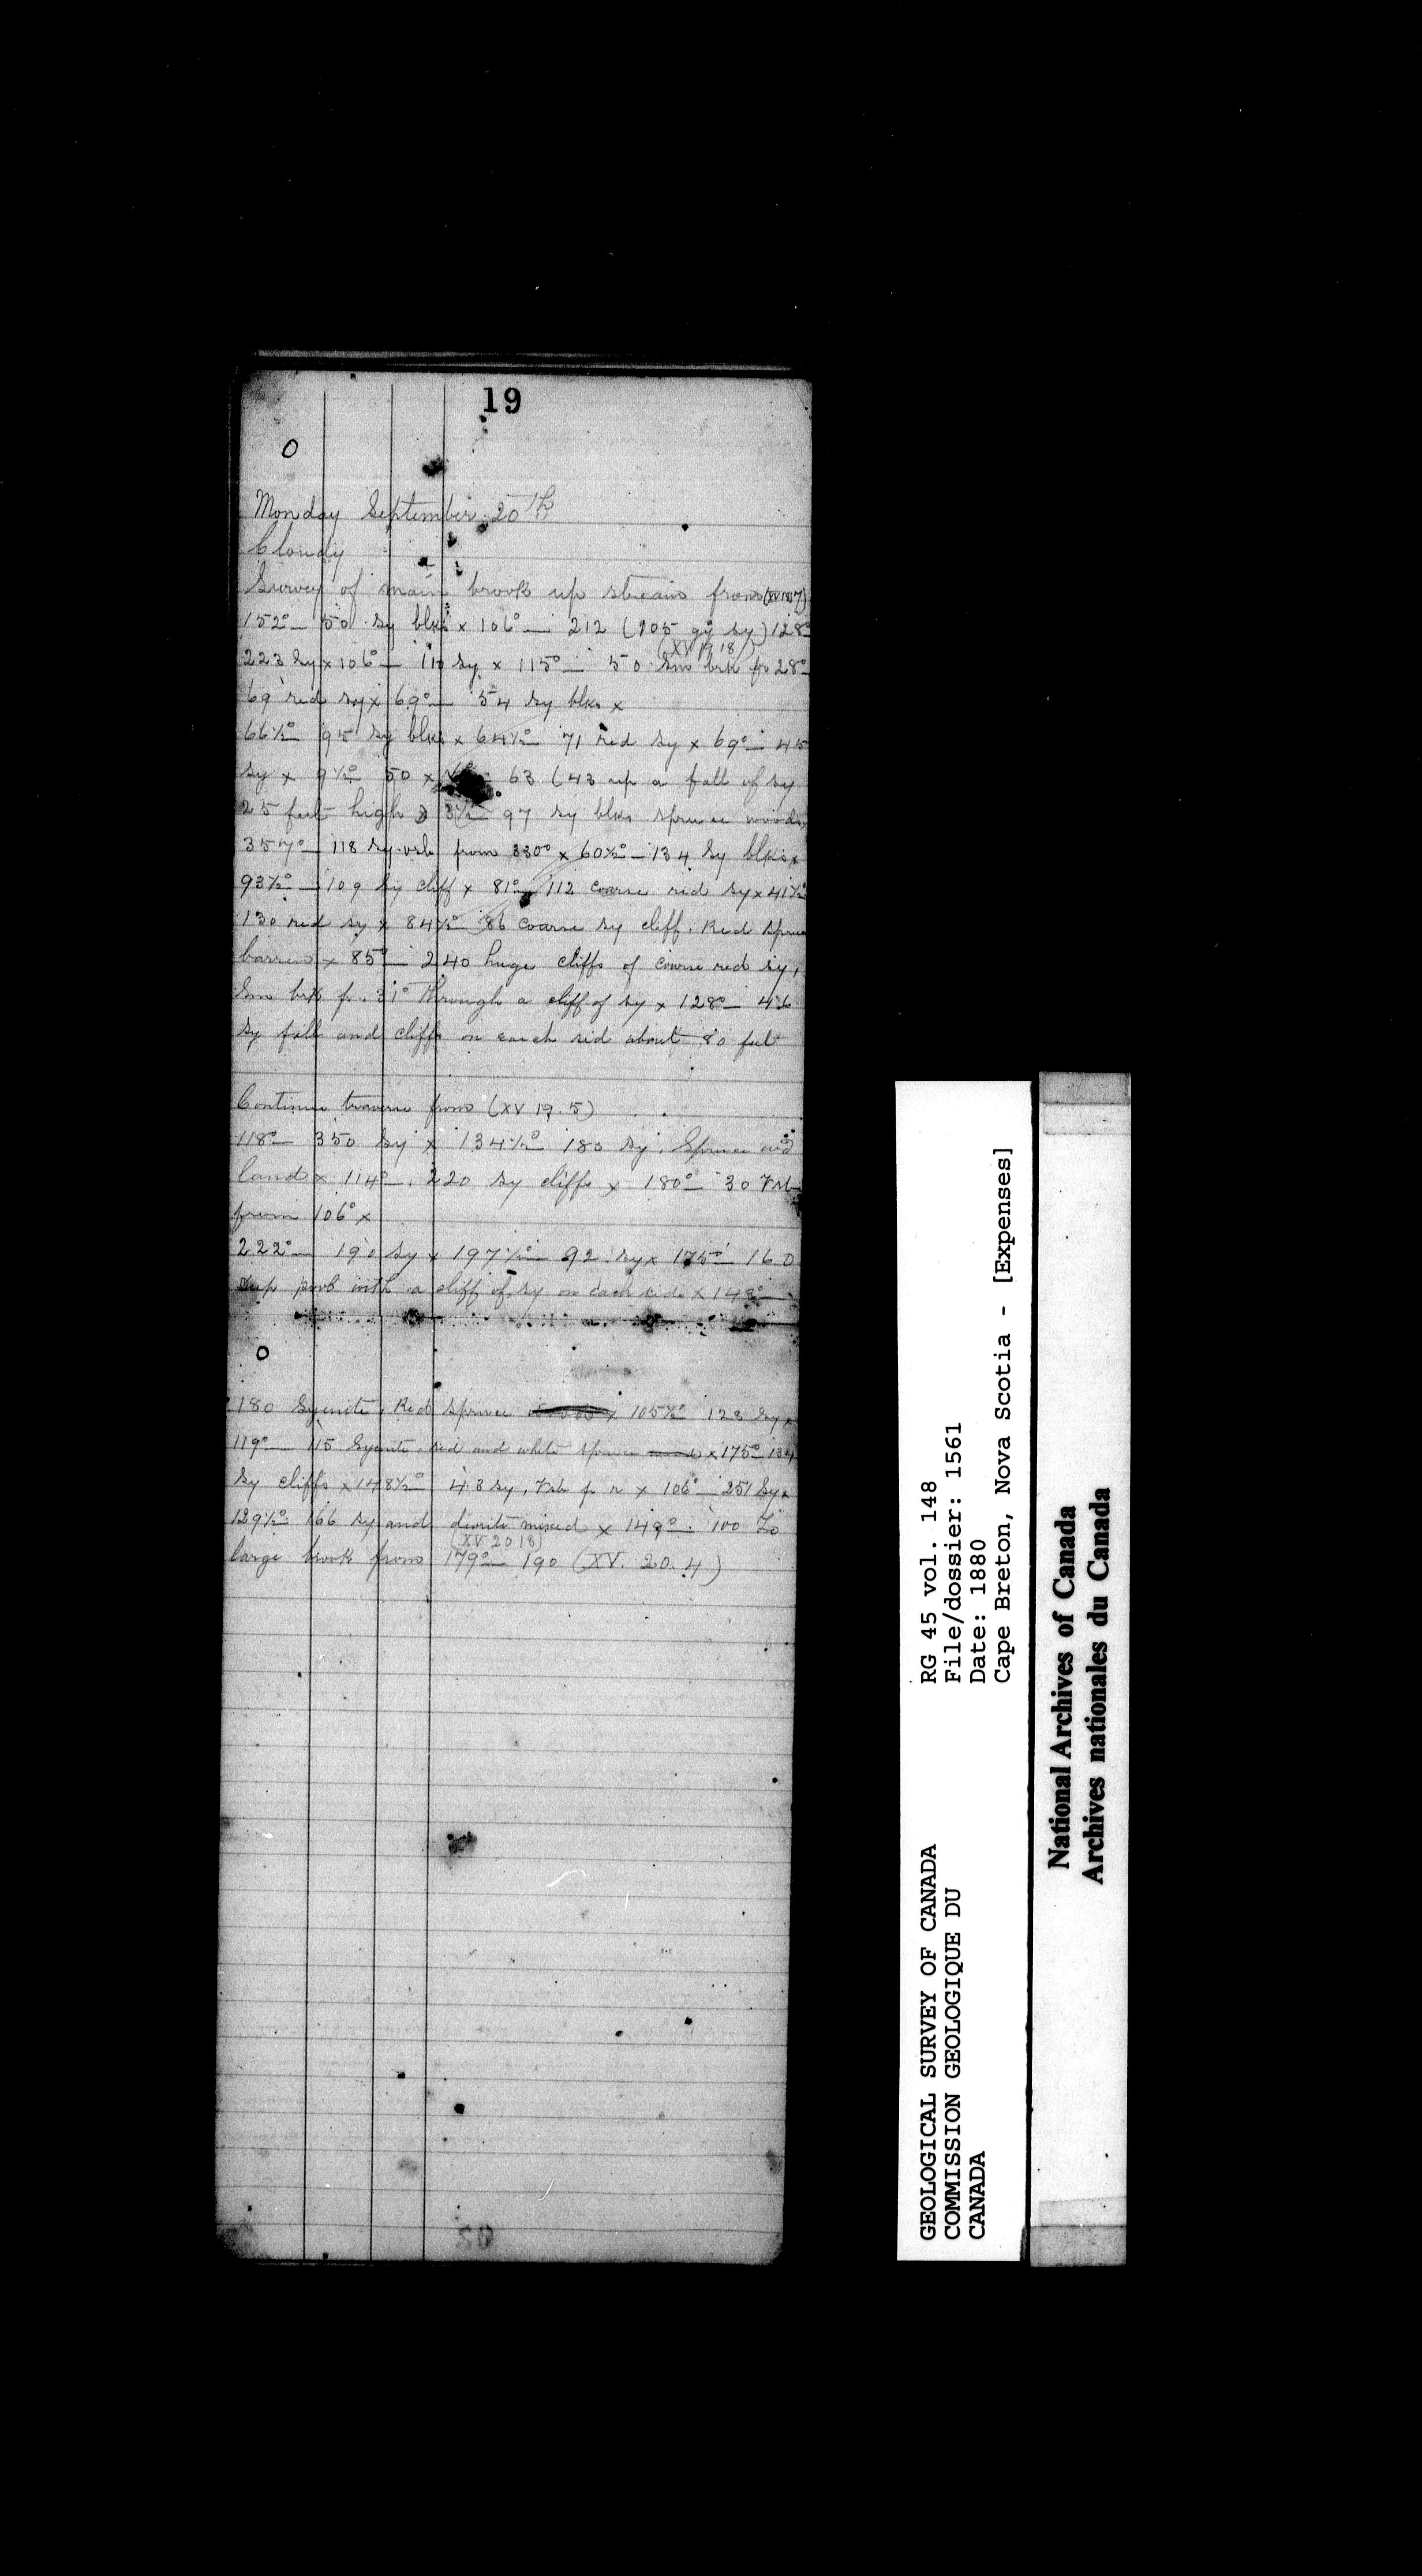 19
Monday September 20th
Cloudy
Survey of main brook up stream from
152°— 50 sy blks x 106°— 212 (105 gy sy) 128°
(XV 19 18)
223 sy x 106°— 110 sy x 115°— 50 Sm brk fr 28°—
69 red sy x 69°— 54 sy blks x
66½° 95 sy blks x 64½° 71 red sy x 69°— 45
sy x 9½° 50 x 63 (43 up a fall of sy
25 feet high 3½— 97 sy blks spruce woods
357°— 118 sy vsb from 330° x 60½°—134 sy blks x
93½°—109 sy cliff x 81°— 112 coarse red sy x 41½°
130 red sy x 84½° 86 coarse sy cliff. Red spruce
barren x 85°— 240 huge cliffs of coarse red sy,
Sm brk fr. 31° through a cliff of sy x 128°— 46
sy fall and cliffs on each sid about 80 feet
Continue traverse from (XV 19. 5)
118°— 350 sy x 134½° 180 sy. Spruce
land x 114°— 220 sy cliffs x 180°— 30 vsb
from 106° x
222°— 190 sy x 197½°— 92 sy x 175°— 160
deep pool with a cliff of sy on each side x 148°—
180 Syenite, Red spruce x 105½° 128 sy x
119°— 115 Syenite, red and white spruce x 175°—134
sy cliffs x 148½° 43 sy, vsb f r x 106°— 251 sy x
129½° 166 sy and diorite mixed x 149°. 100 To
(XV 20 18)
large brook from 179°— 190 (XV. 20. 4)
GEOLOGICAL SURVEY OF CANADA
COMMISSION GEOLOGIQUE DU
CANADA
RG 45 vol. 148
File/dossier: 1561
Date: 1880
Cape Breton, Nova Scotia - [Expenses]
National Archives of Canada
Archives nationales du Canada